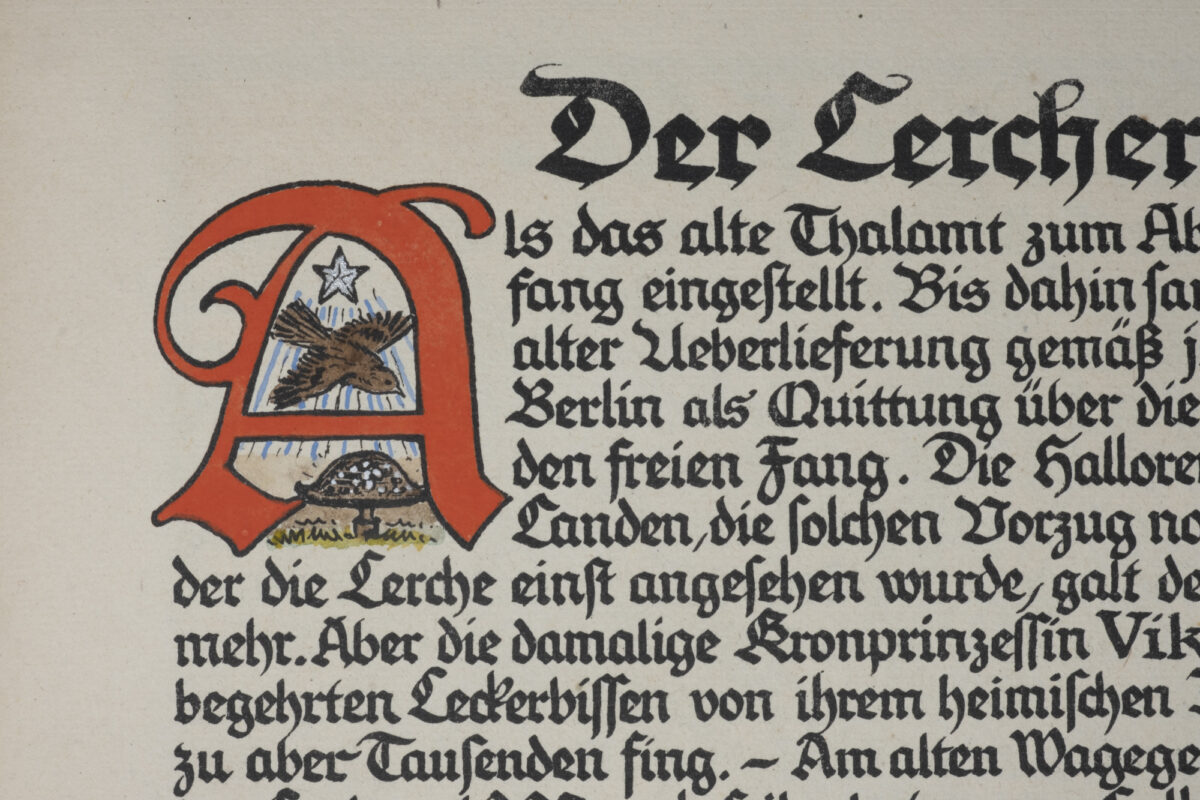 Der Lercher
Als das alte Thalamt zum Ab
fang eingestellt. Bis dahin san
alter Ueberlieferung gemäß j
Berlin als Quittung über die
den freien Fang. Die Hallore
Landen, die solchen Vorzug no
der die Lerche einst angesehen wurde, galt de
mehr. Aber die damalige Kronprinzessin Vik
begehrten Leckerbissen von ihrem heimischen
zu aber Tausenden fing. – Am alten Wagege